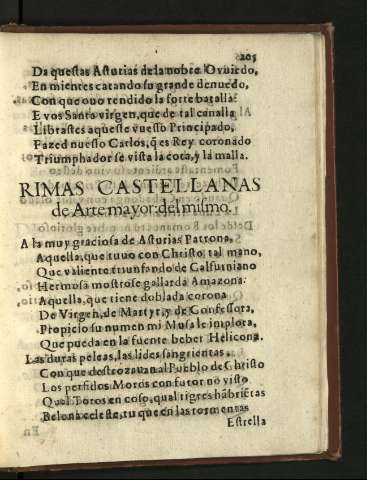 205
Da questas Asturias de la nobre Ouuiedo,
En mientes catando su grande denuedo,
Con que ouo rendido la forte batalla:
E vos Santa virgen, que de tal canalla
Librastes aqueste vuesso Principado,
Fazed nuesso Carlos, q̃ es Rey coronado
Triumphador se vista la cota, y la malla.
RIMAS CASTELLANAS
de Arte mayor del mismo.
A la muy graciosa de Asturias Patrona,
Aquella, que tuuo con Christo tal mano,
Que valiente triunfando de Calfurniano
Hermosa mostrose gallarda Amazona:
Aquella, que tiene doblada corona
De Virgen, de Martyr, y de Confessora,
Propicio su numen mi Musa le implora,
Que pueda en la fuente beber Helicona.
Las duras peleas, las lides sangrientas
Con que destrozauan al Pueblo de Christo
Los perfidos Moros con furor no visto
Qual Toros en coso, qual tigres hābrietas
Belona celeste, tu que en las tormentas
Estrella